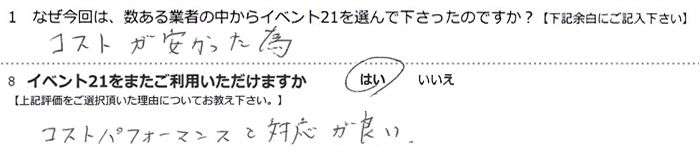 1 なぜ今回は、数ある業者の中からイベント21を選んで下さったのですか？【下記余白にご記入下さい】
コストが安かった為
8 イベント21をまたご利用いただけますか はい いいえ
【上記評価をご選択頂いた理由についてお教え下さい。】
コストパフォーマンスと対応が良い.